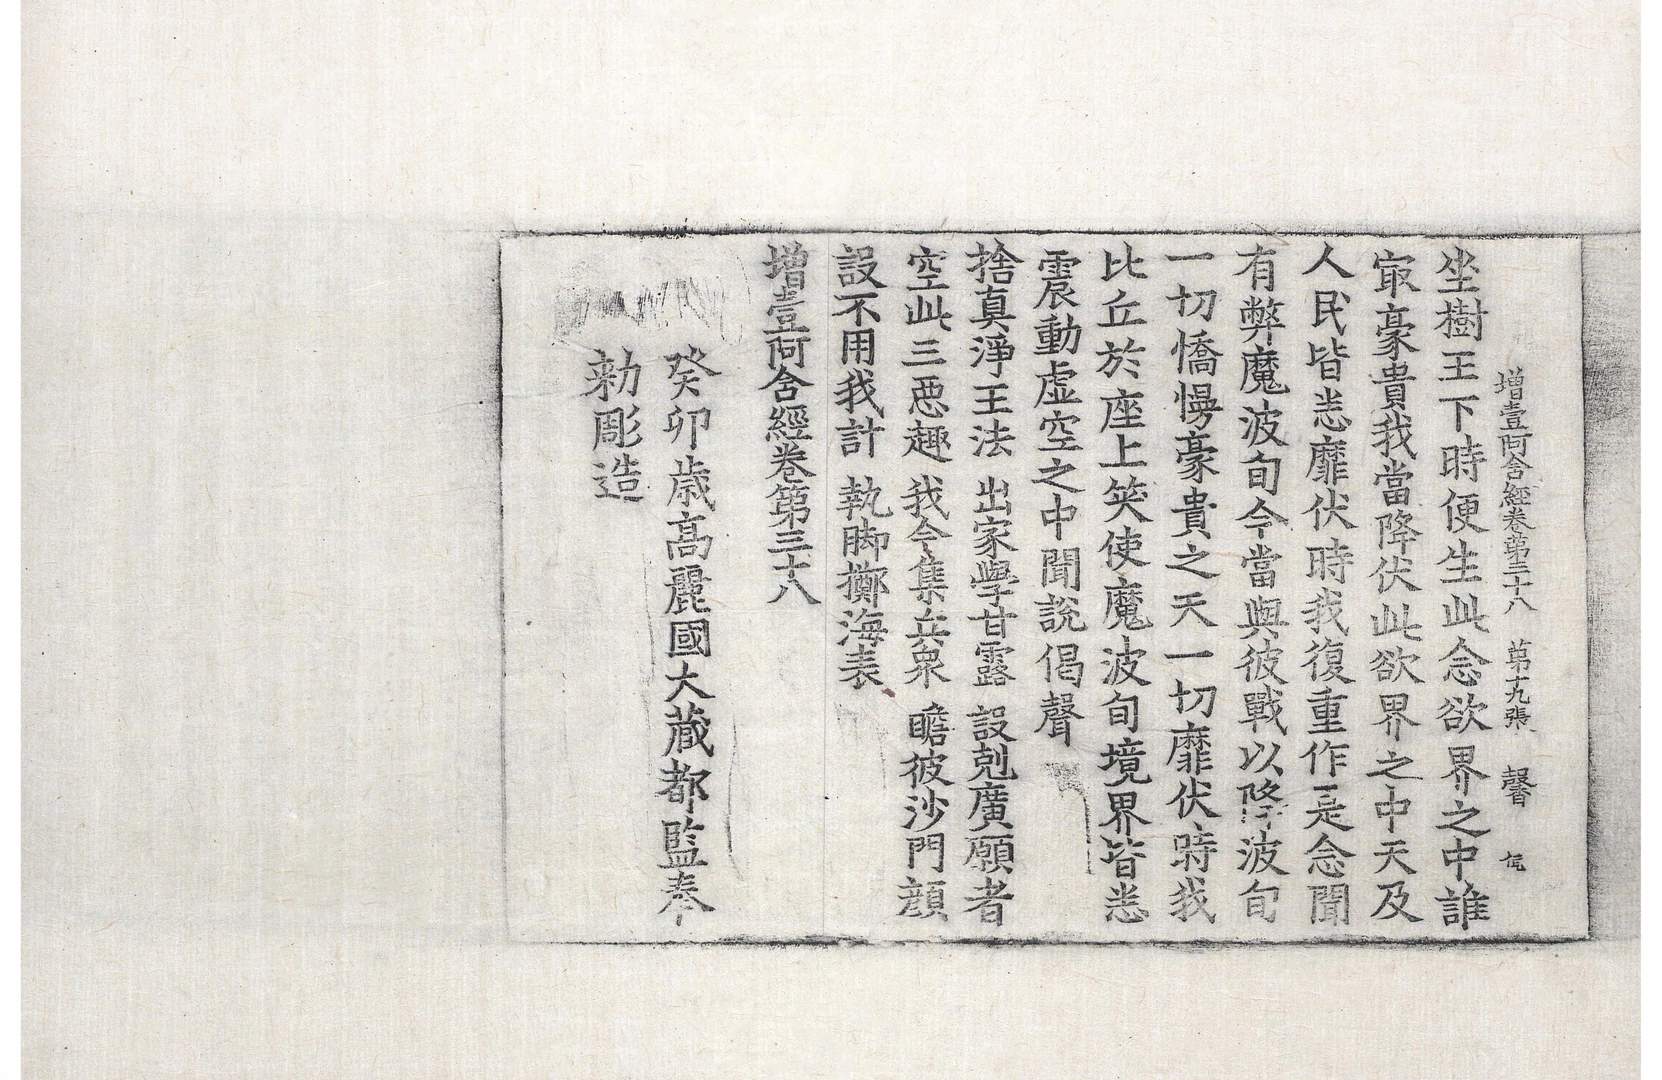 增壹阿含經卷第三十八 第十九張 馨
坐樹王下時便生此念欲界之中誰
㝡豪貴我當降伏此欲界之中天及
人民皆悉靡伏時我復重作是念聞
有弊魔波旬今當與彼戰以降波旬
一切憍慢豪貴之天一切靡伏時我
比丘於座上笑使魔波旬境界皆悉
震動虛空之中聞說偈聲
捨真淨王法 出家學甘露 設剋廣願者
空此三惡趣 我今集兵衆 瞻彼沙門顔
設不用我計 執脚擲海表
增壹阿含經卷第三十八
癸卯歲高麗國大藏都監奉
勅彫造